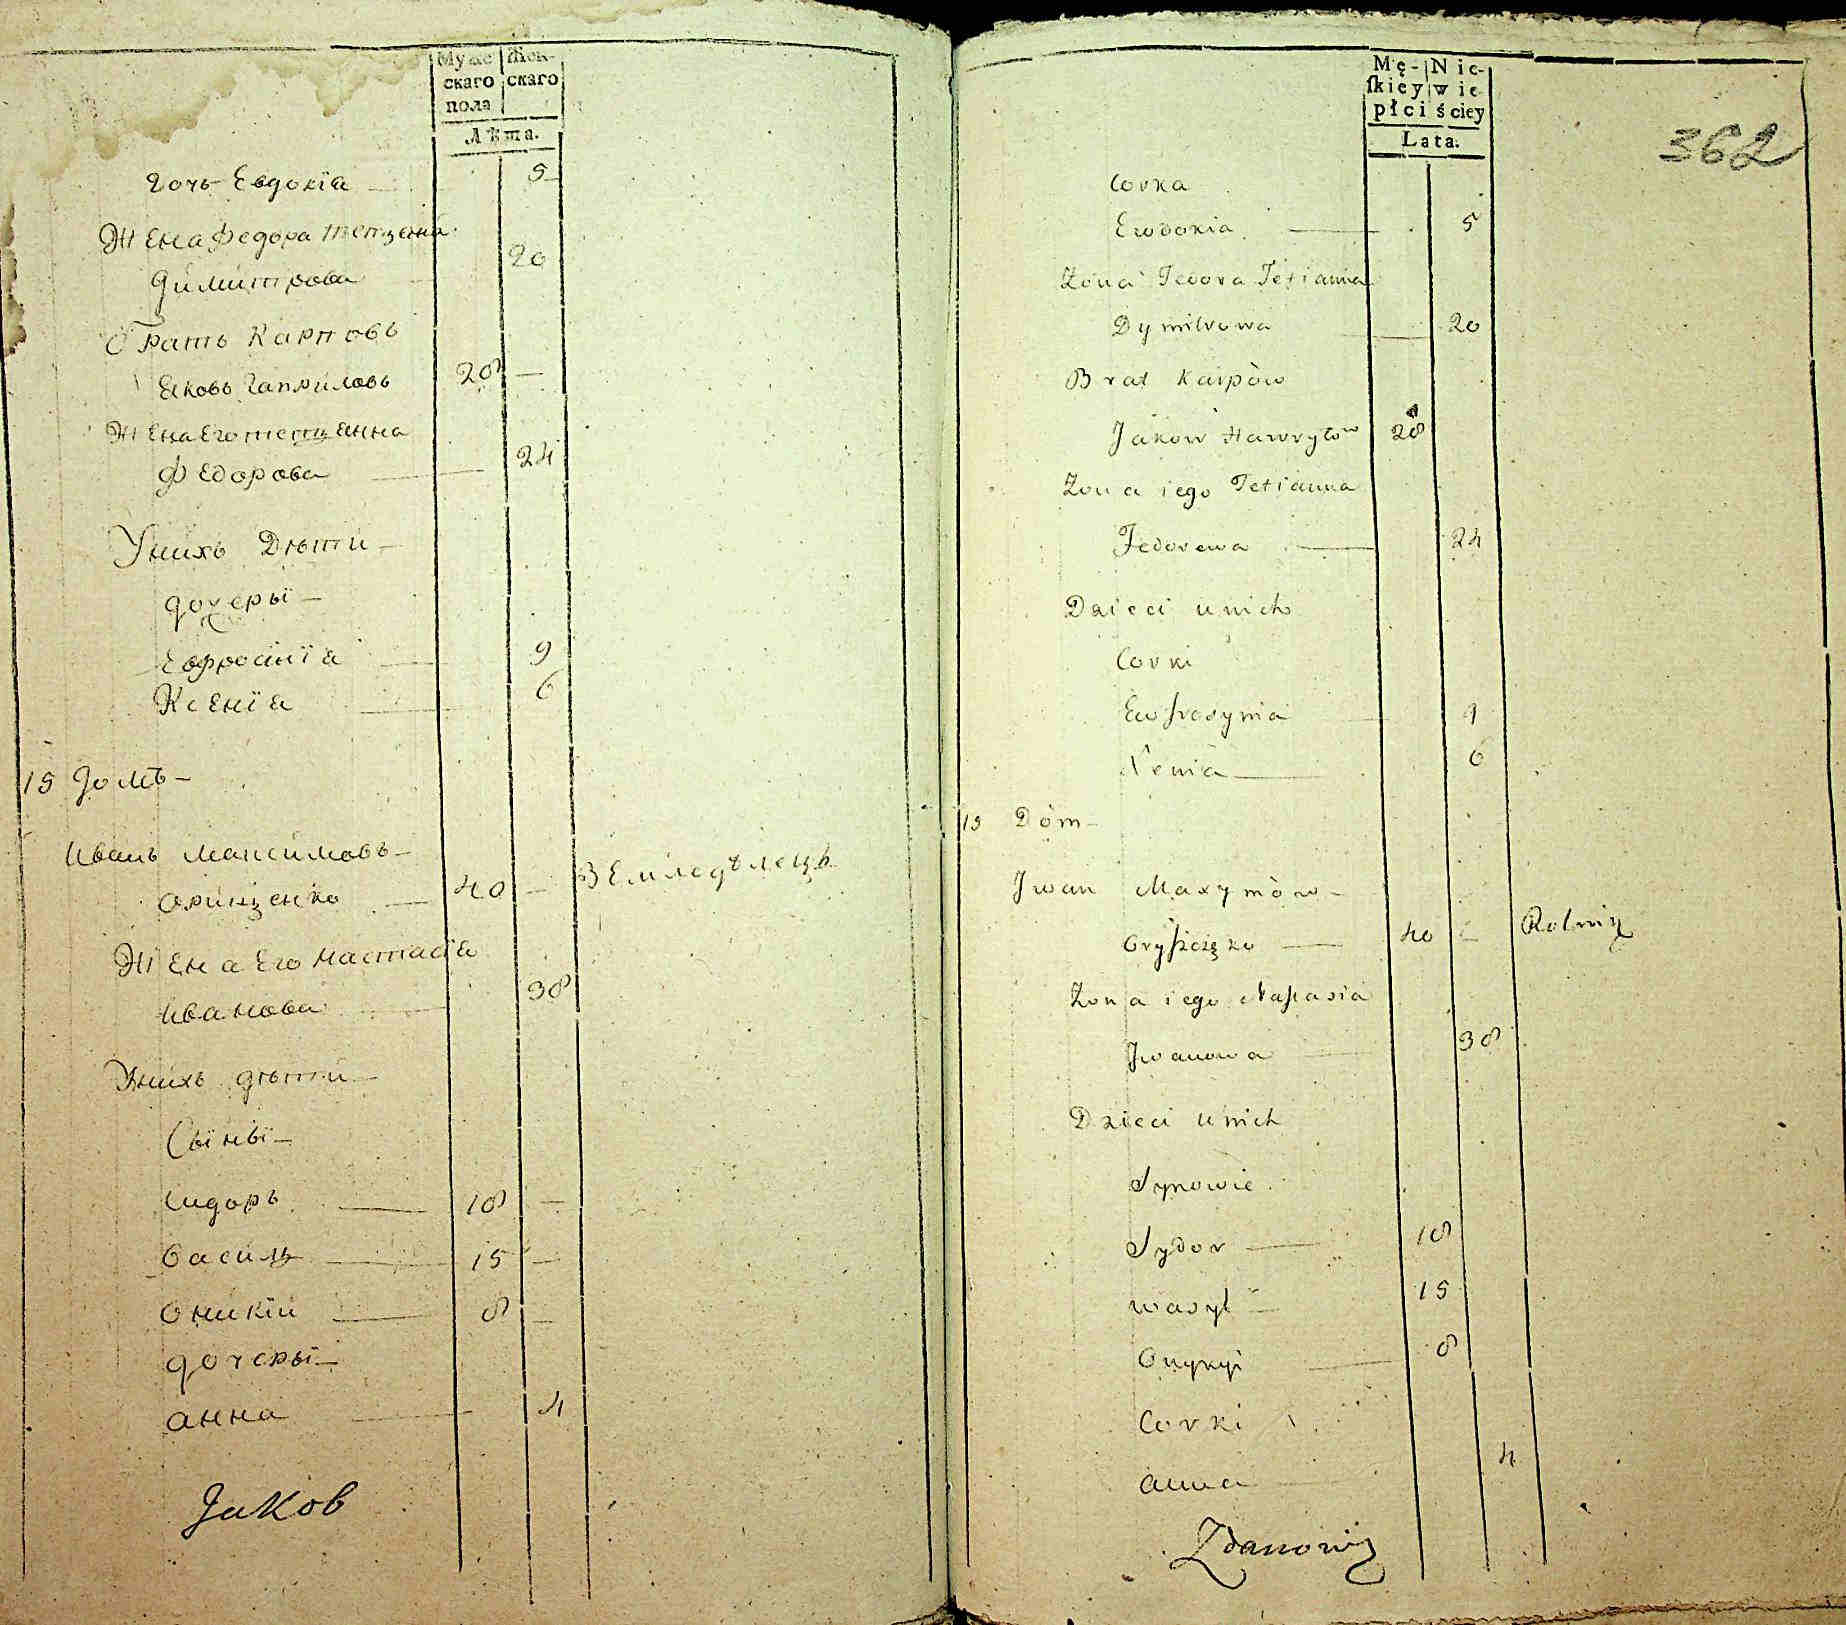 Мужс
скаго
пола
Жен-
скаго
Лѣта.
дочь Евдокїа — 5
Жена Федора Тетцеина
Димитрова 20
Братъ Карповъ
Яковъ Гаврилов 28 —
Жена его тетцеанна
Федорова — 24
Унихъ Дѣти —
дочеры —
Евфросинїа — 9
Ксенїа — 6
15 Домъ —
Иванъ Максимовъ —
Орищенко — 40 — Земледѣлецъ
Жена Его Настасїа
Иванова — 38
Унихъ дѣти —
Сыны —
Сидоръ — 18 —
Василь — 15 —
Оникїи — 8 —
дочеры —
анна — 4
Jakob
Mę-
skiey
płci
Nie-
wie
ściey
Lata.
362
Corka
Ewdokia — 5
Zona Fedora Tetianna
Dymitrowa — 20
Brat Karpòw
Jakow Hawryłow 28
Zona iego Tetianna
Fedorowa — 24
Dzieci u nich
Corki
Ewfrosynia 9
Xenia — 6
15 Dóm —
Jwan Maxymòw —
Oryszczęko — 40 — Rolnik
Zona iego Nastasia
Jwanowa — 38
Dzieci u nich
Synowie
Sydor — 18
wasyl — 15
Onykyi — 8
Corki
anna — 4
Zdanowicz